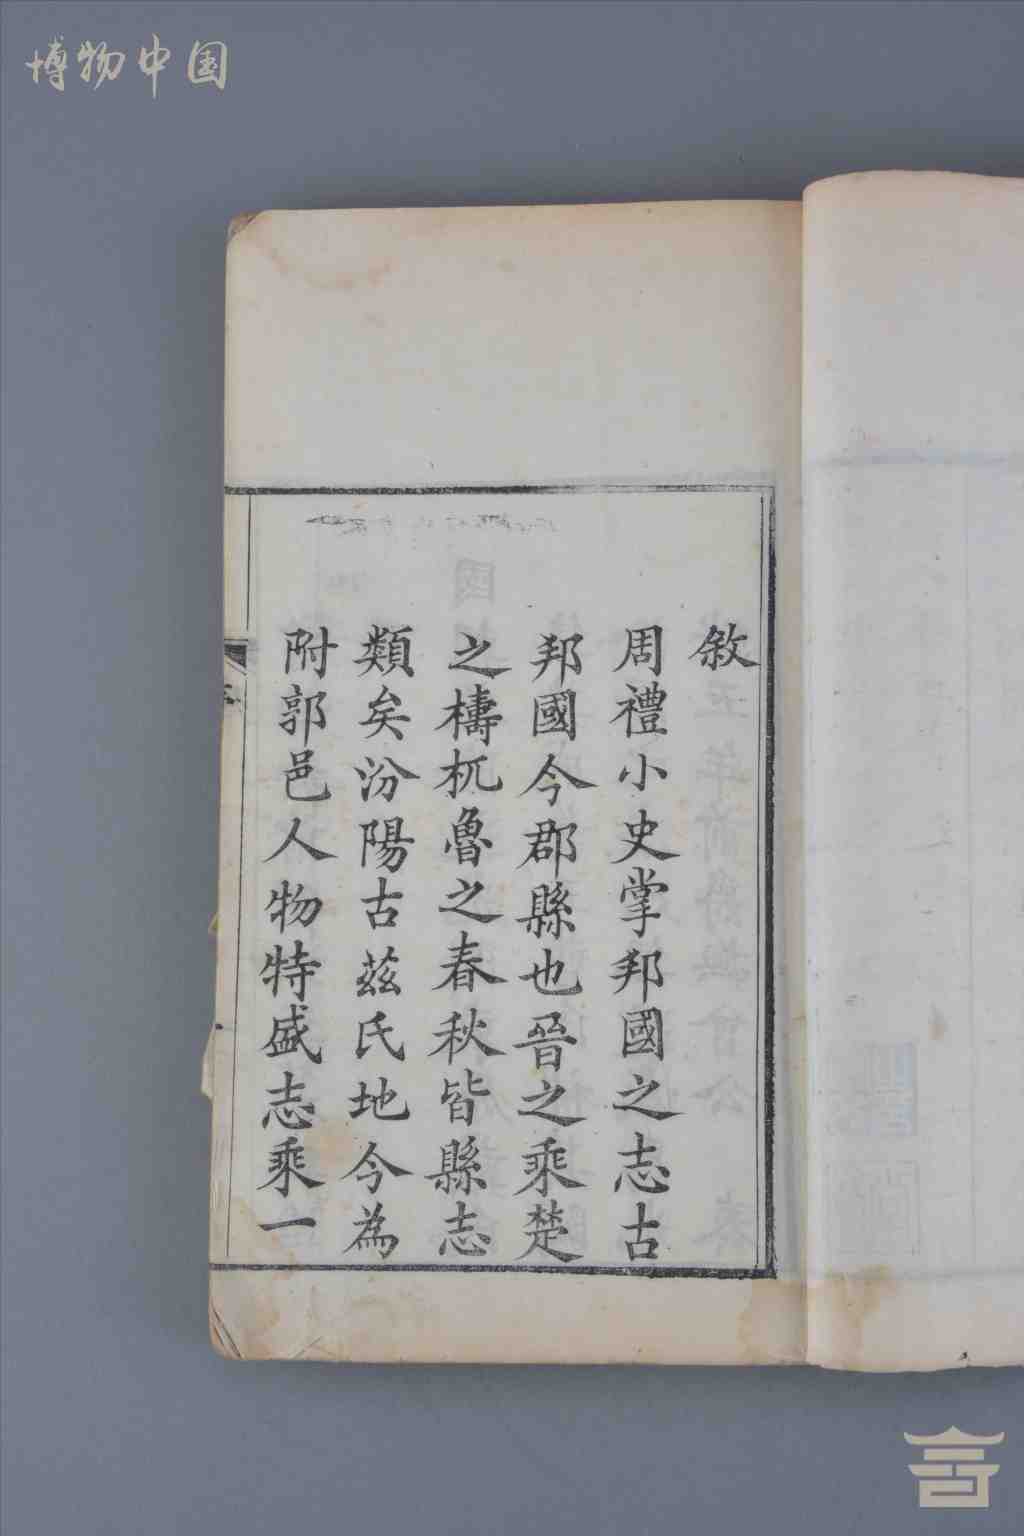 博物中国
敘
周禮小史掌邦國之志古
邦國今郡縣也晉之乘楚
之檮杌魯之春秋皆縣志
類矣汾陽古茲氏地今為
附郭邑人物特盛志乘一